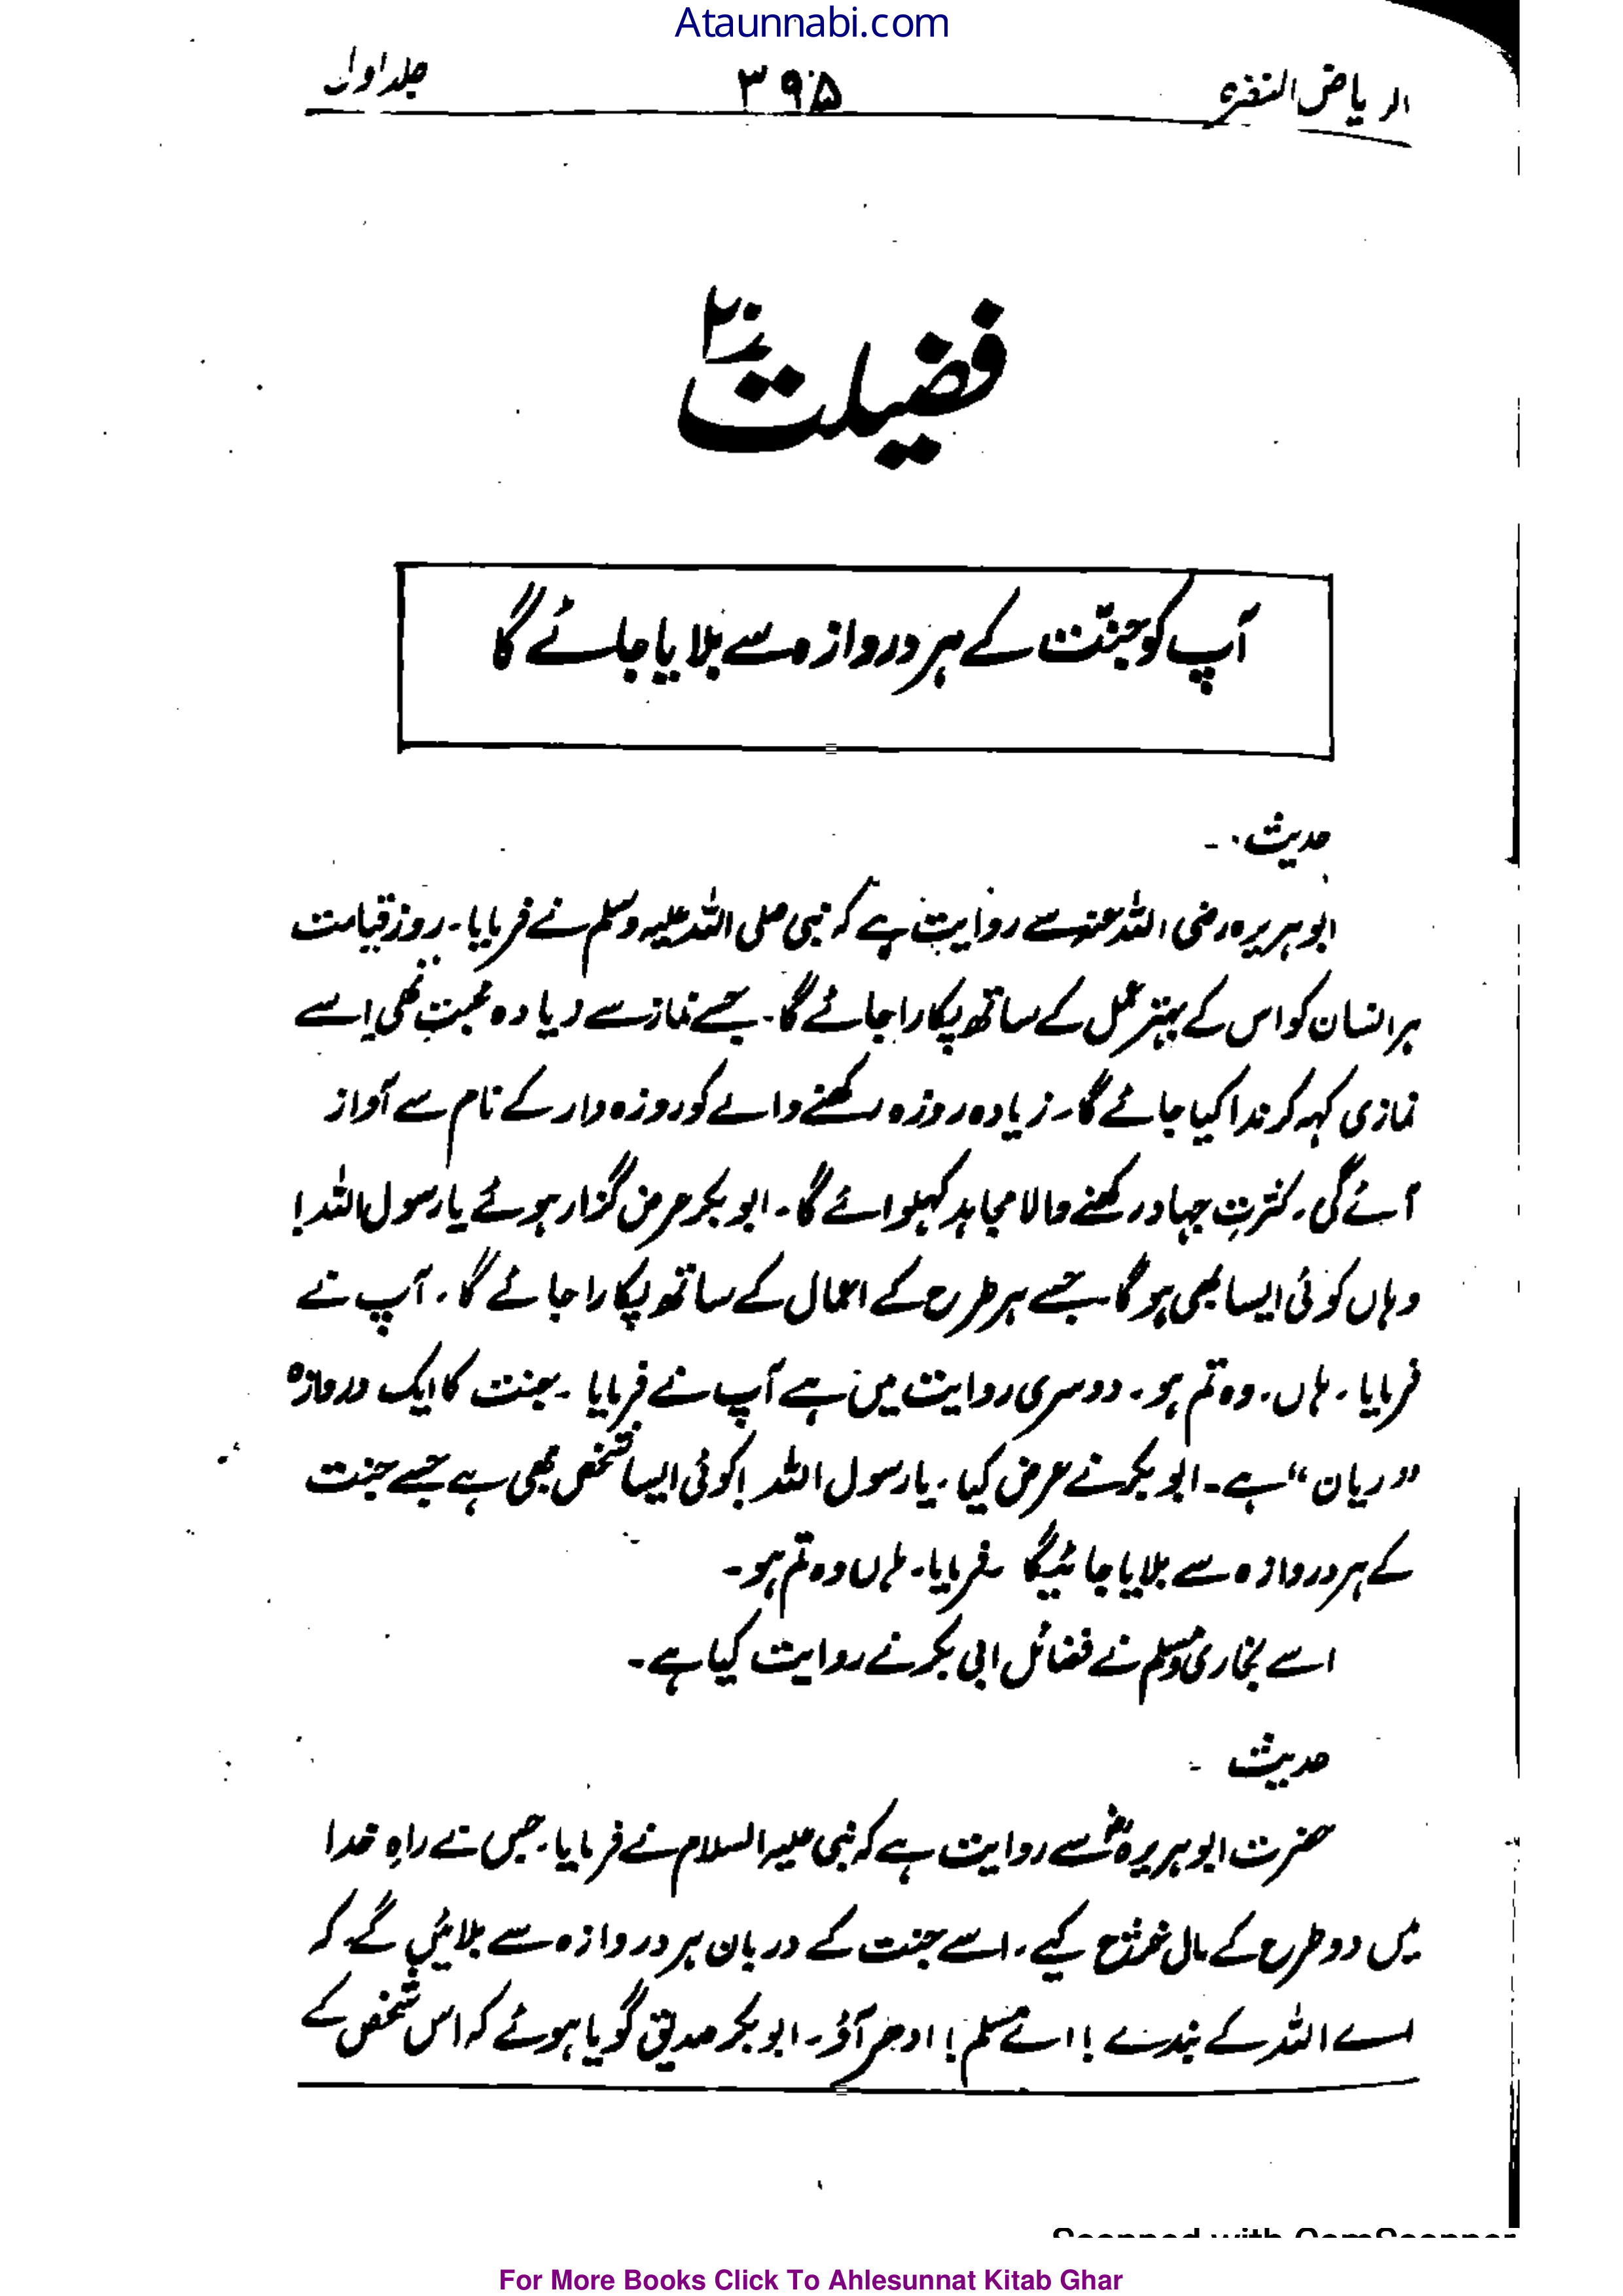 Ataunnabi.com
الریاض النضرہ ۳۹۵ جلد اول
فضیلت نمبر۲
آپ کو جنت کے ہر دروازہ سے بلایا جائے گا
حدیث :-
ابوہریرہ رضی اللہ عنہ سے روایت ہے کہ نبی صلی اللہ علیہ وسلم نے فرمایا۔ روز قیامت
ہر انسان کو اس کے بہتر عمل کے ساتھ پکارا جائے گا۔ جسے نماز سے زیادہ محبت تھی اسے
نمازی کہہ کر ندا کیا جائے گا۔ زیادہ روزہ رکھنے والے کو روزہ دار کے نام سے آواز
آئے گی۔ کثرتِ جہاد رکھنے والا مجاہد کہلوائے گا۔ ابوبکر عرض گزار ہوئے یا رسول اللہ!
وہاں کوئی ایسا بھی ہو گا جسے ہر طرح کے اعمال کے ساتھ پکارا جائے گا۔ آپ نے
فرمایا۔ ہاں۔ وہ تم ہو۔ دوسری روایت میں ہے آپ نے فرمایا۔ جنت کا ایک دروازہ
”ریان“ ہے۔ ابوبکر نے عرض کیا۔ یا رسول اللہ! کوئی ایسا شخص بھی ہے جسے جنت
کے ہر دروازہ سے بلایا جائیگا۔ فرمایا۔ ہاں وہ تم ہو۔
اسے بخاری و مسلم نے فضائل ابی بکر نے روایت کیا ہے۔
حدیث -
حضرت ابوہریرہؓ سے روایت ہے کہ نبی علیہ السلام نے فرمایا۔ جس نے راہِ خدا
میں دو طرح کے مال خرچ کیے۔ اسے جنت کے دربان ہر دروازہ سے بلائیں گے۔ کہ
اے اللہ کے بندے! اے مسلم! ادھر آؤ۔ ابوبکر صدیق گویا ہوئے کہ اس شخص کے
Scanned with CamScanner
For More Books Click To Ahlesunnat Kitab Ghar